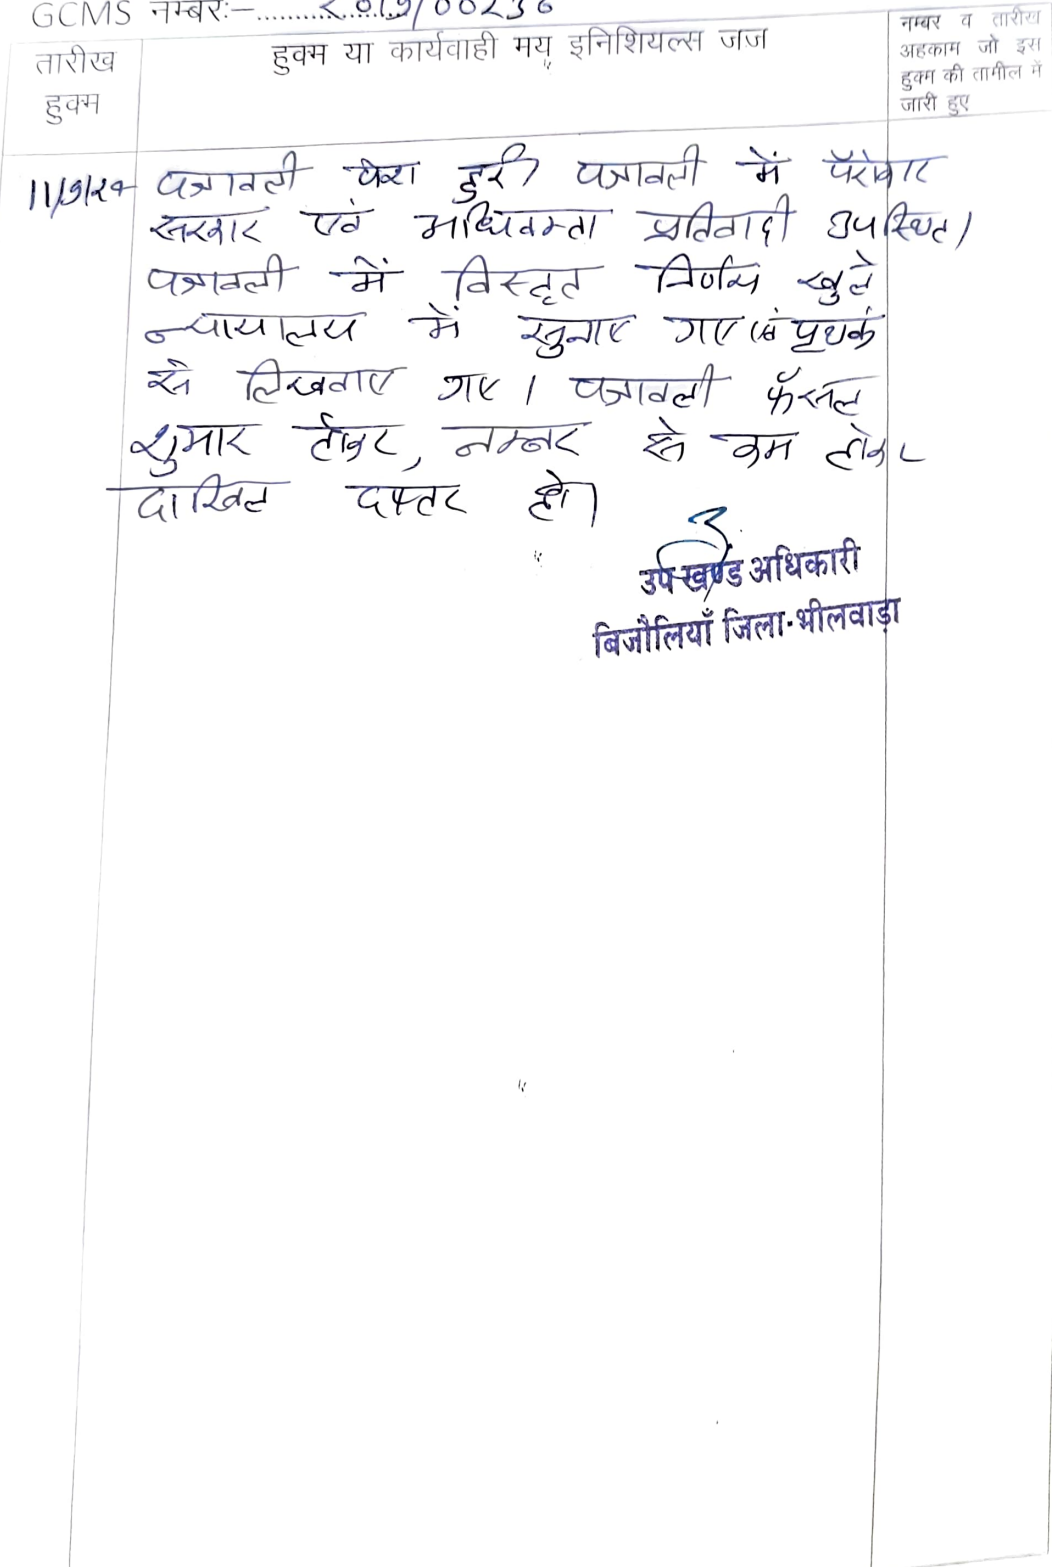 GCMS नम्बरः-....2019/00236
तारीख हुक्म
हुक्म या कार्यवाही मय इनिशियल्स जज
नम्बर व तारीख
अहकाम जो इस
हुक्म की तामील में
जारी हुए
11/9/24 पत्रावली पेश हुई। पत्रावली में पॅरोकार
सरकार एवं अधिवक्ता प्रतिवादी उपस्थित।
पत्रावली में विस्तृत निर्णय खुले
न्यायालय में सुनाए गए एवं पृथक
से लिखवाए गए। पत्रावली फॅसल
शुमार होकर, नम्बर से कम होकर
दाखिल दफ्तर हो।
उपखण्ड अधिकारी
बिजौलियाँ जिला-भीलवाड़ा